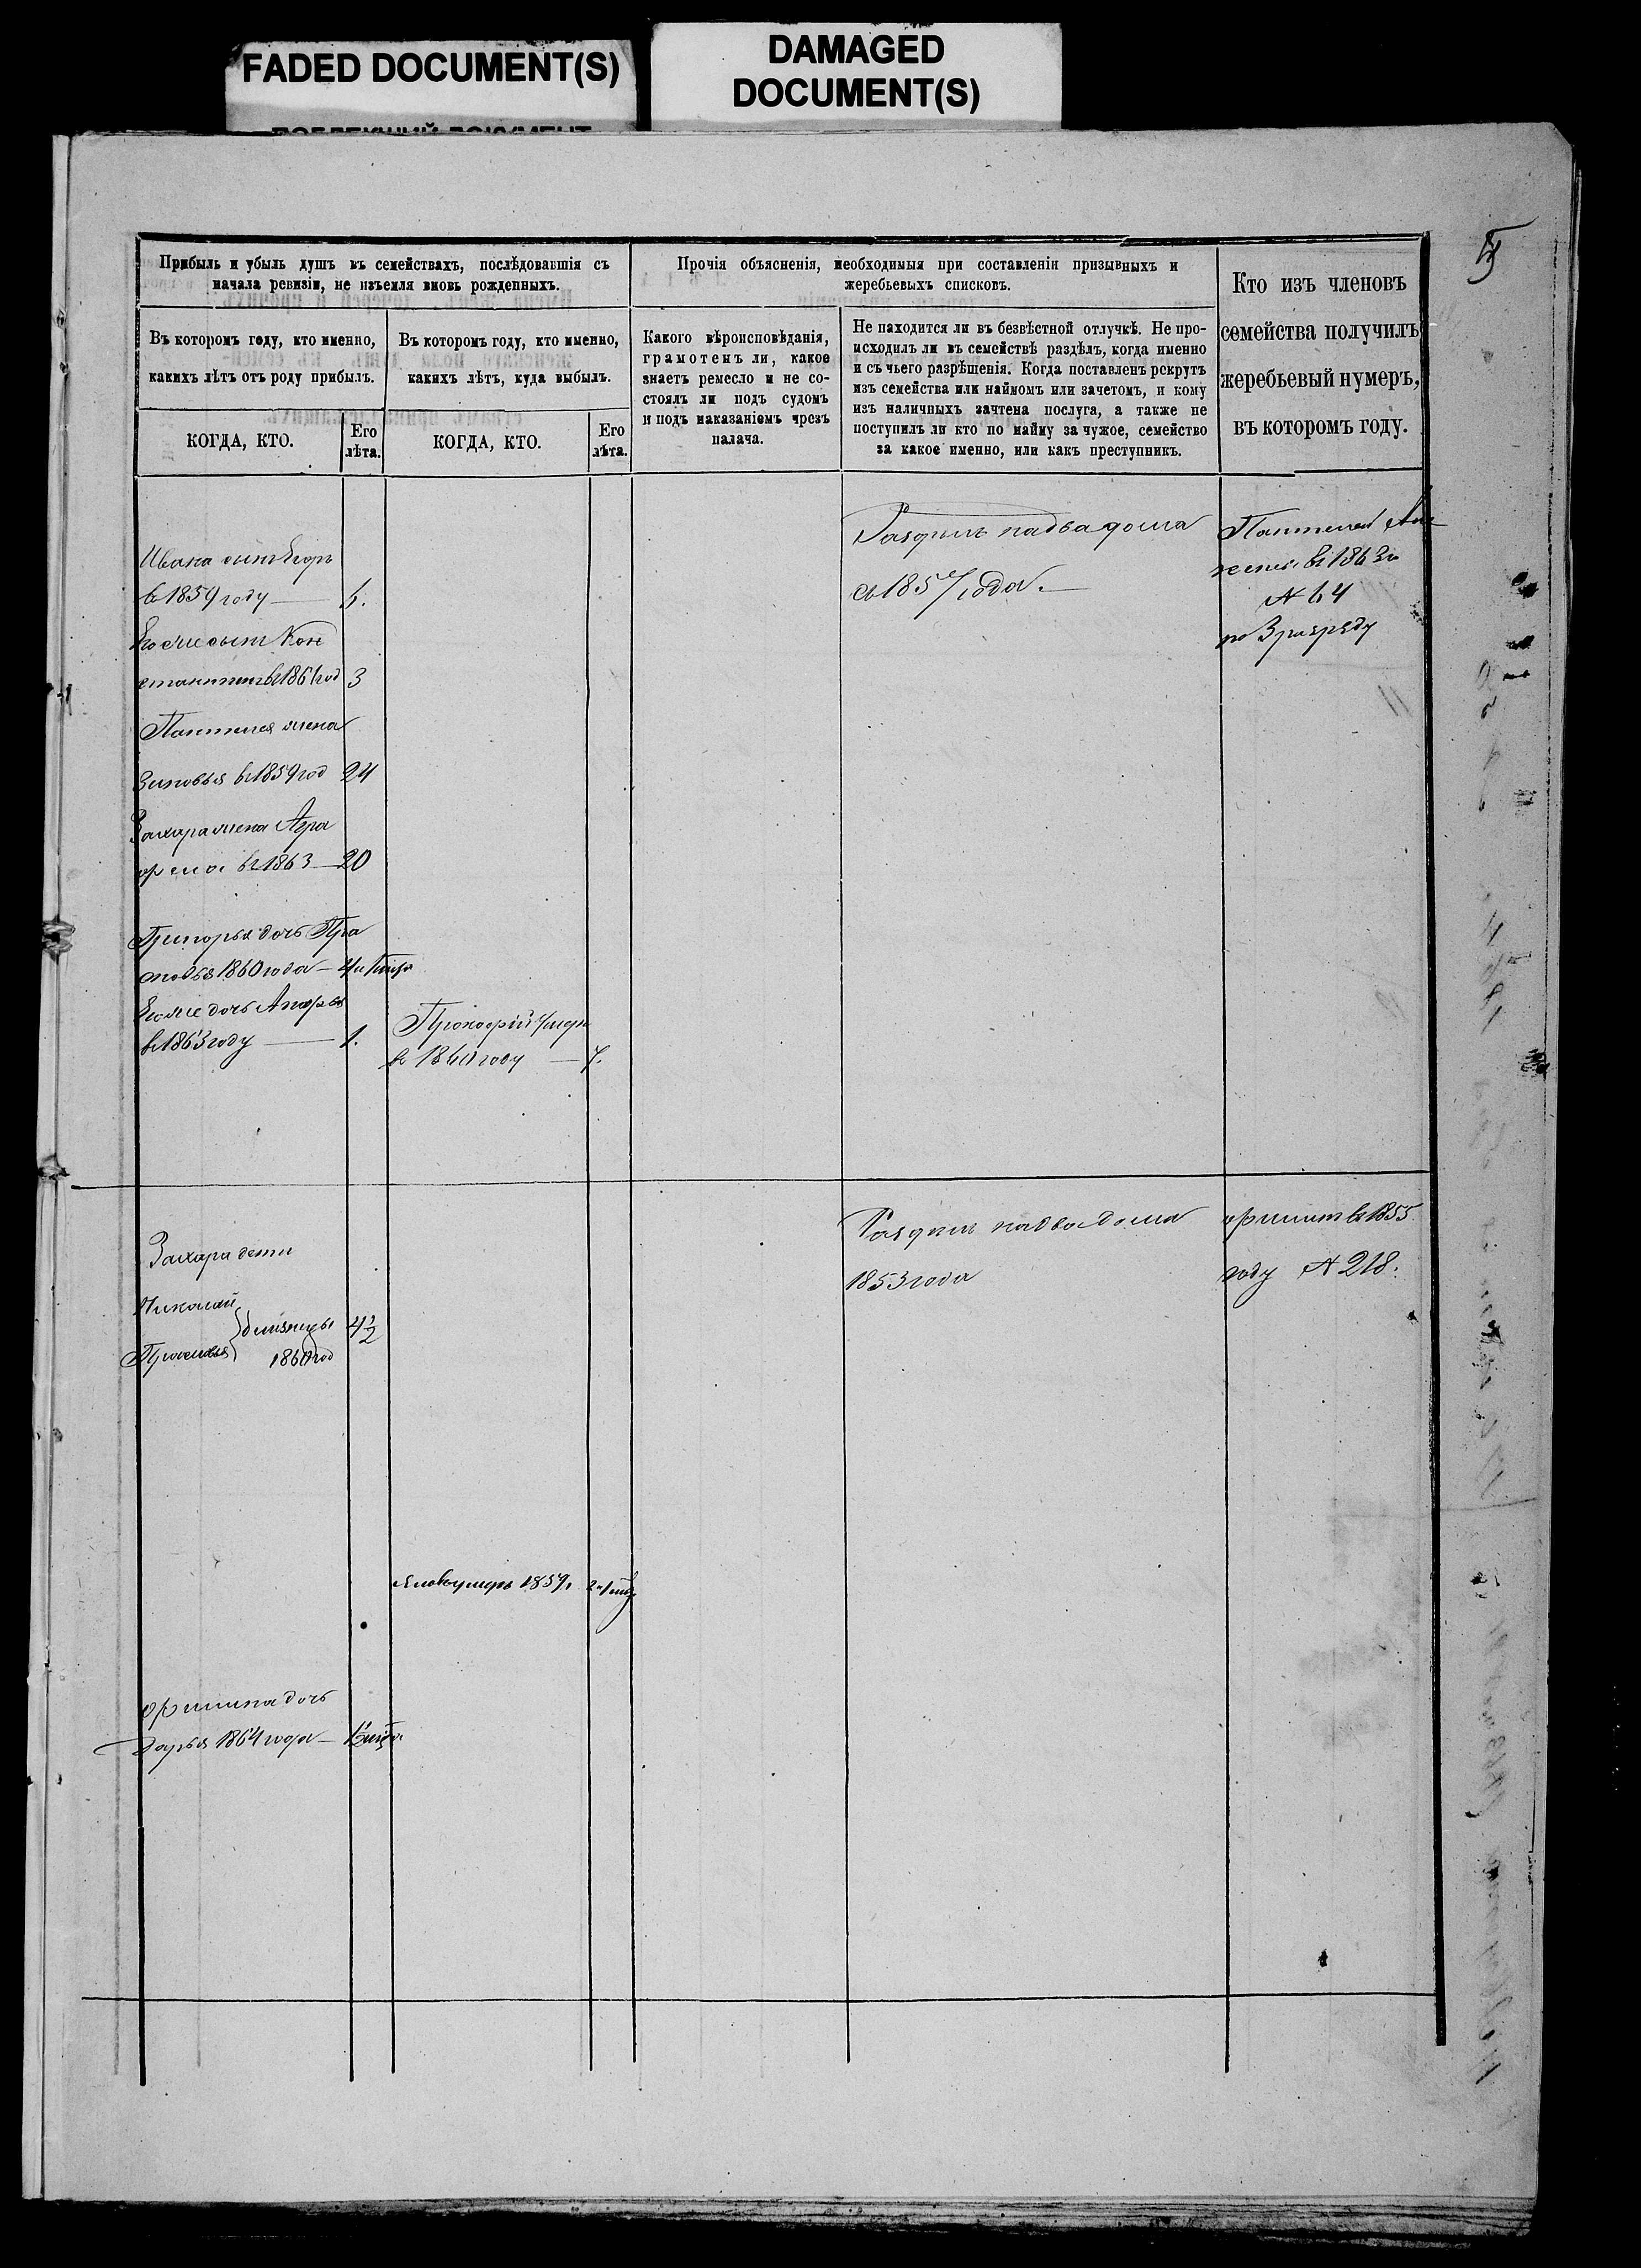 FADED DOCUMENT(S)
DAMAGED
DOCUMENT(S)
Прибыль и убыль душъ въ семействахъ, послѣдовавшія съ
начала ревизіи, не изъемля вновь рожденныхъ.
Прочія объясненія, необходимыя при составленіи призывныхъ и
жеребьевыхъ списковъ.
Кто изъ членовъ
семейства получилъ
жеребьевый нумеръ,
въ которомъ году.
Въ которомъ году, кто именно,
какихъ лѣтъ отъ роду прибылъ.
Въ которомъ году, кто именно,
какихъ лѣтъ, куда выбылъ.
Какого вѣроисповѣданія,
грамотенъ ли, какое
знаетъ ремесло и не со-
стоялъ ли подъ судомъ
и подъ наказаніемъ чрезъ
палача.
Не находится ли въ безвѣстной отлучкѣ. Не про-
исходилъ ли въ семействѣ раздѣлъ, когда именно
и съ чьего разрѣшенія. Когда поставленъ рекрутъ
изъ семейства или наймомъ или зачетомъ, и кому
изъ наличныхъ зачтена послуга, а также не
поступилъ ли кто по найму за чужое, семейство
за какое именно, или какъ преступникъ.
КОГДА, КТО.
Его
лѣта.
КОГДА, КТО.
Его
лѣта.
Ивана сынъ Егоръ
въ 1859 году
Его же сынъ Кон
стантинъ въ 1861 год 3
Пантелея жена
Зиновья въ 1859 год 24
Захара жена Агра
фена въ 1863 — 20
Григорья дочь Пра
сковья 1860 года — 4
Его же дочь
въ 1863 году — 1.
Прокофій умеръ
въ 1860 году — 7.
Раздѣлъ на два дома
съ 1857 года.
Пантелей
въ 1863
№ 64
по 3 разряду
Захара дети
Николай
близнецы
1860 год
4 1/2
Раздѣлъ на два дома
1853 года
въ 1855
году № 218.
умеръ 1859
дочь
Дарья 1864 года —